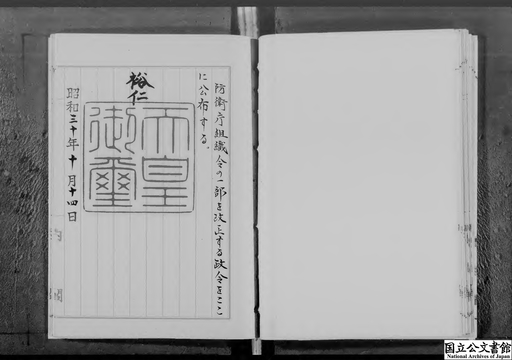 防衛庁組織令の一部を改正する政令をここ
に公布する。
裕仁
天皇
御璽
昭和三十年十月十四日
国立公文書館
National Archives of Japan